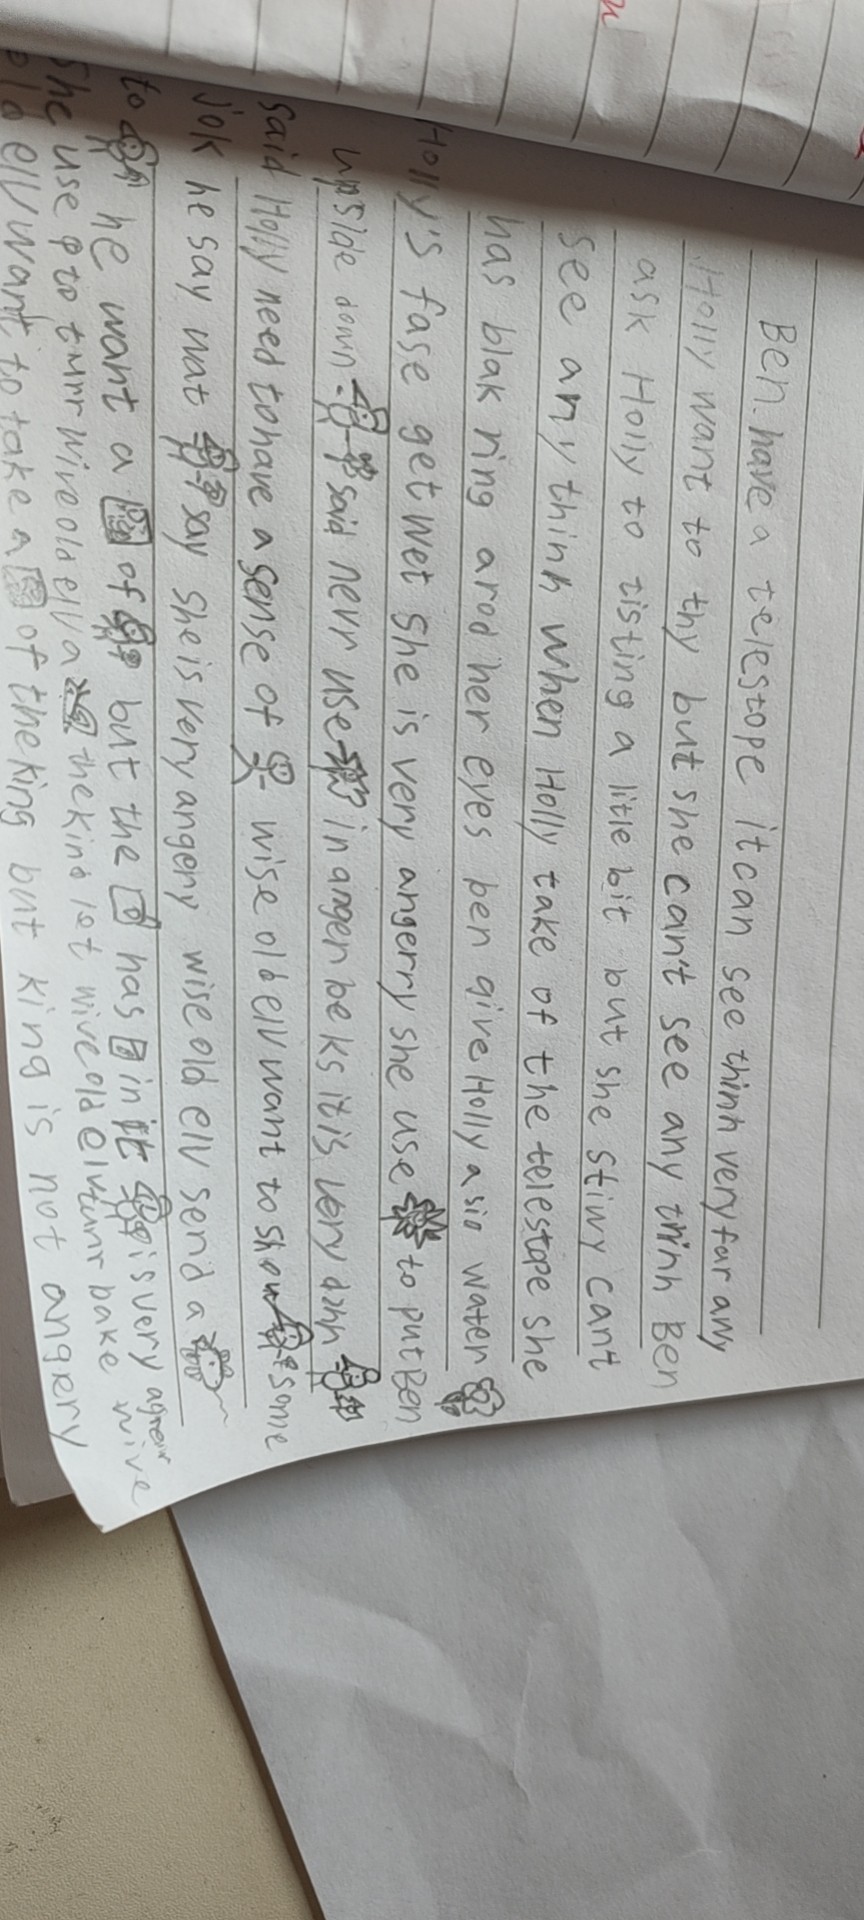 Ben have a telestope it can see thinh very far any
Holly want to thy but she can't see any thinh Ben
ask Holly to tisting a litle bit but she stiwy can't
see any thinh when Holly take of the telestope she
has blak ring arod her eyes ben give Holly a sio water
Holly's fase get wet she is very angerry she use to put Ben
upside down said nevr use in angen beks it is very dahn
said Holly need to have a sense of wise old elv want to show some
jok he say wat say she is very angery wise old elv send a
to he want a of but the has in it is very
she use to turr wive old elv a the kind let wive old elv tunr bake wive
old elv want to take a of the king but king is not angery